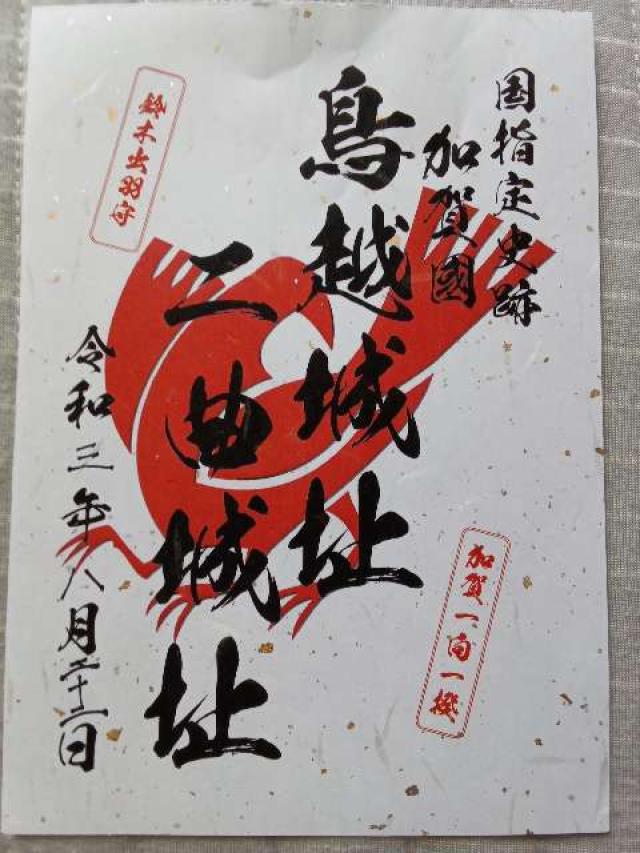 国指定史跡
加賀國
鳥越城址
二曲城址
令和三年八月二十二日
鈴木出羽守
加賀一向一揆